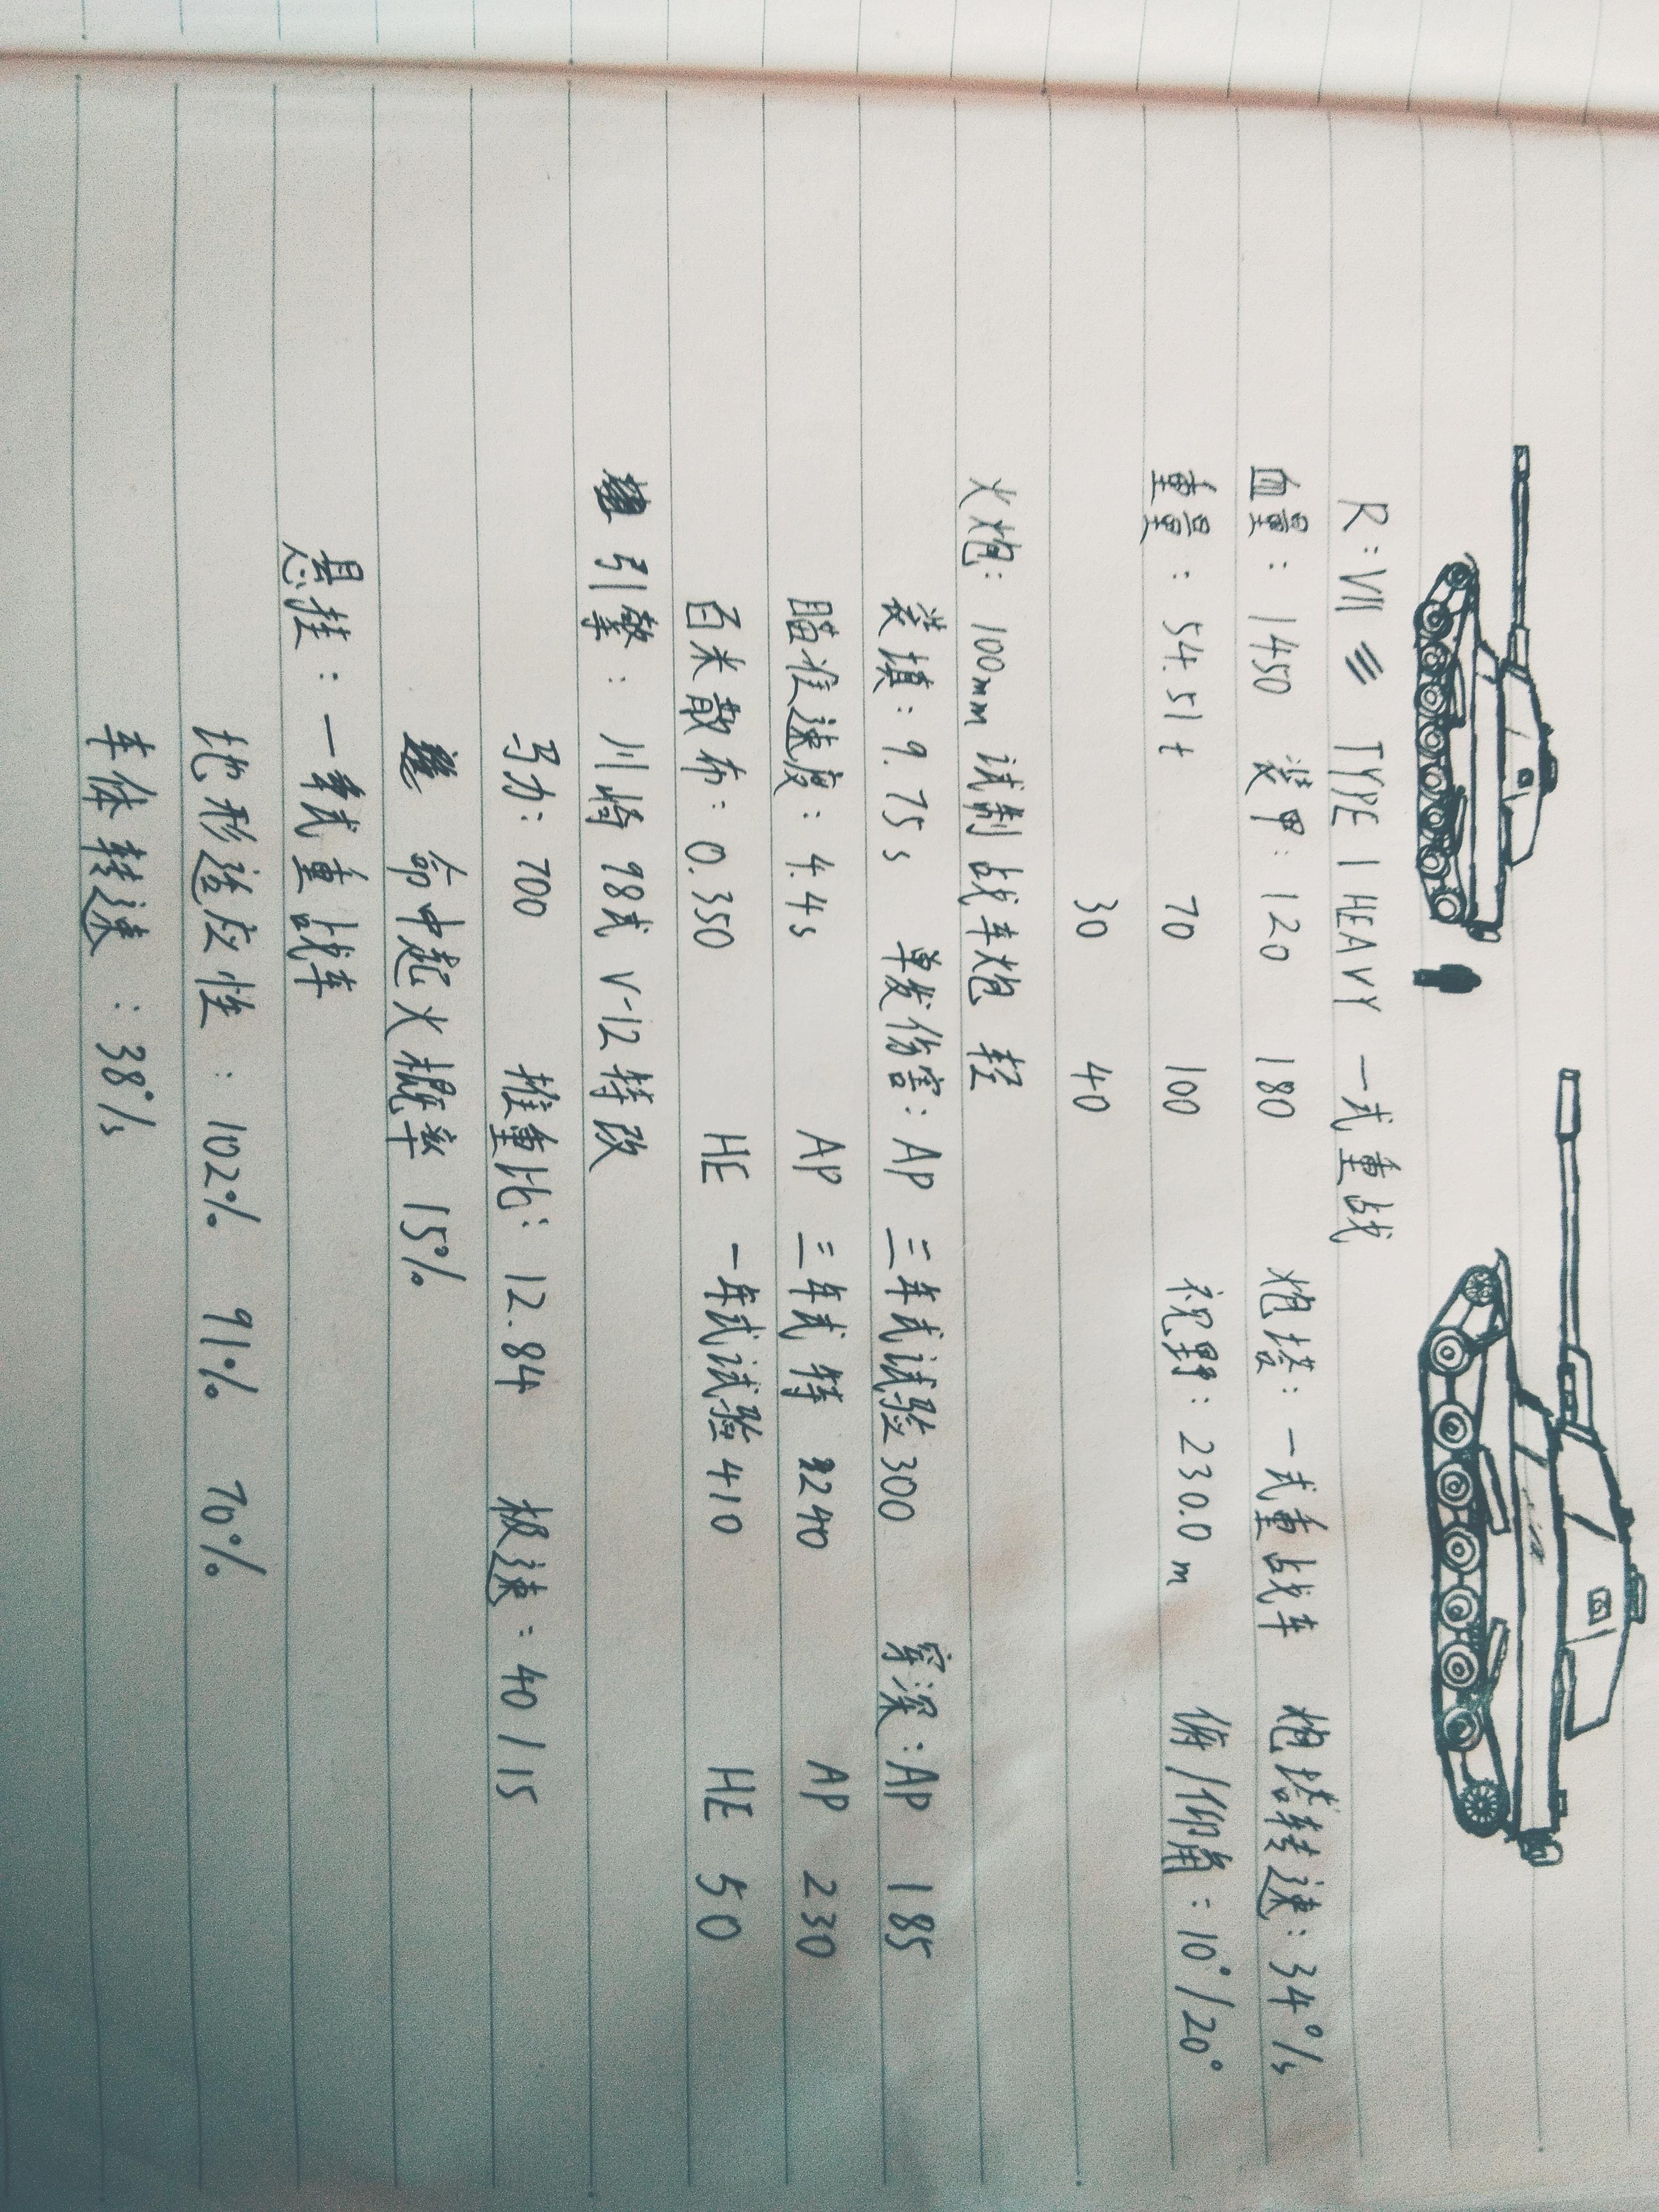 R:VII ⫻ TYPE 1 HEAVY 一式重战
血量:1450 装甲:120 180 炮塔:一式重战车 炮塔转速:34°/s
重量:54.51t 70 100 视野:230.0m 俯/仰角:10°/20°
30 40
火炮:100mm 试制战车炮 轻
装填:9.75s 单发伤害:AP 三年式试验300 穿深:AP 185
瞄准速度:4.4s AP 三年式特 240 AP 230
百米散布:0.350 HE 一年式试验410 HE 50
引擎:川崎98式V-12特改
马力:700 推重比:12.84 极速:40/15
命中起火概率 15%
悬挂:一式重战车
地形适应性:102% 91% 70%
车体转速:38°/s